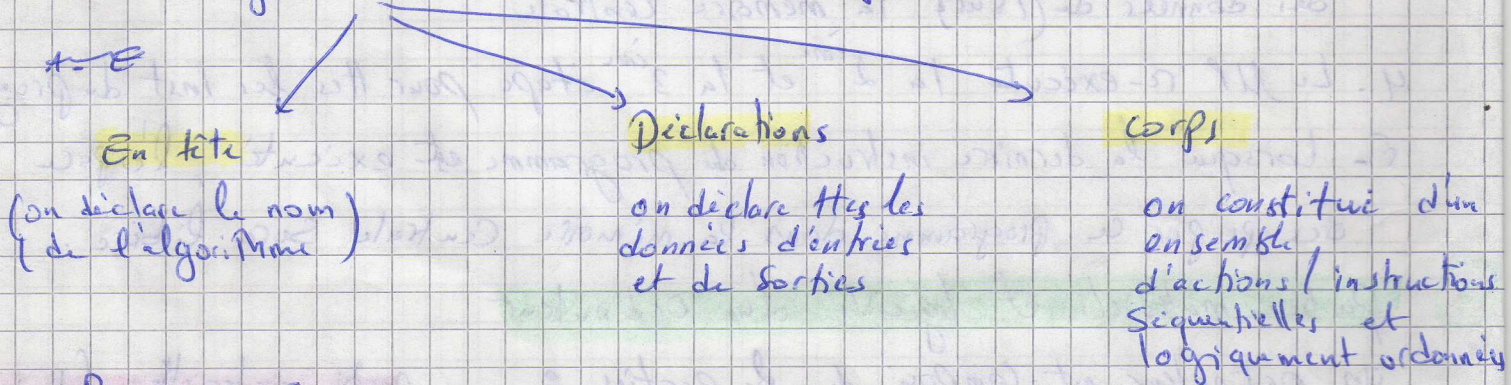 En tête
(on déclare le nom
de l'algorithme)
Déclarations
on déclare ttes les
données d'entrées
et de sorties
corps
on constitué d'un
ensemble
d'actions / instructions
séquentielles et
logiquement ordonnées